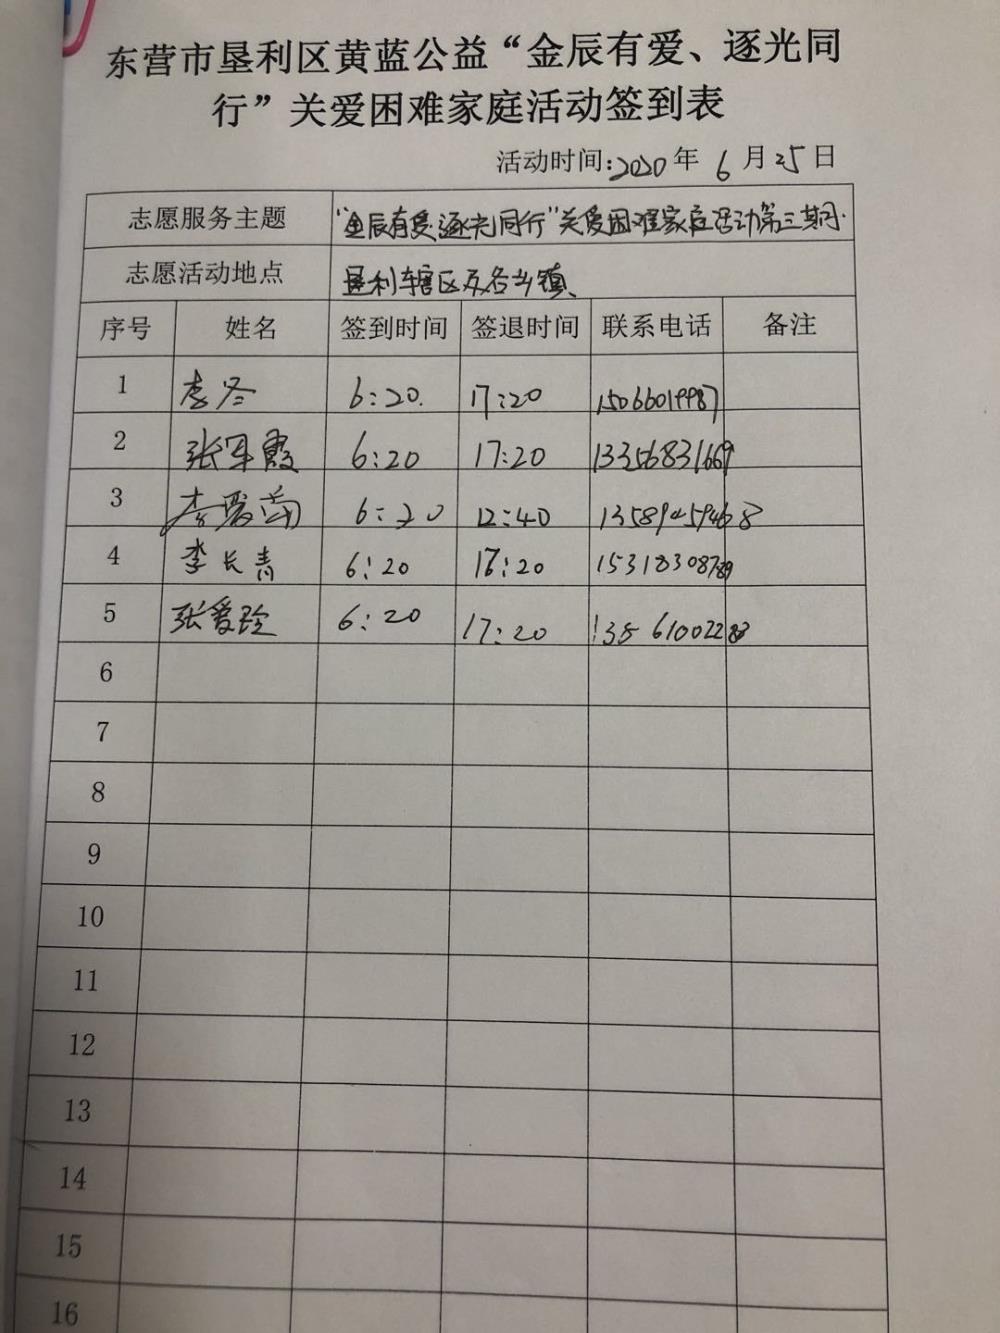 东营市垦利区黄蓝公益“金辰有爱、逐光同
行”关爱困难家庭活动签到表
活动时间:2020年 6 月 25 日
志愿服务主题 “金辰有爱.逐光同行”关爱困难家庭活动第三期
志愿活动地点 垦利辖区及各乡镇
序号 姓名 签到时间 签退时间 联系电话 备注
1 李冬 6:20 17:20 15066019987
2 张军霞 6:20 17:20 13356831669
3 6:20 12:40 13589459468
4 李长青 6:20 17:20 15318308789
5 张爱玲 6:20 17:20
6
7
8
9
10
11
12
13
14
15
16